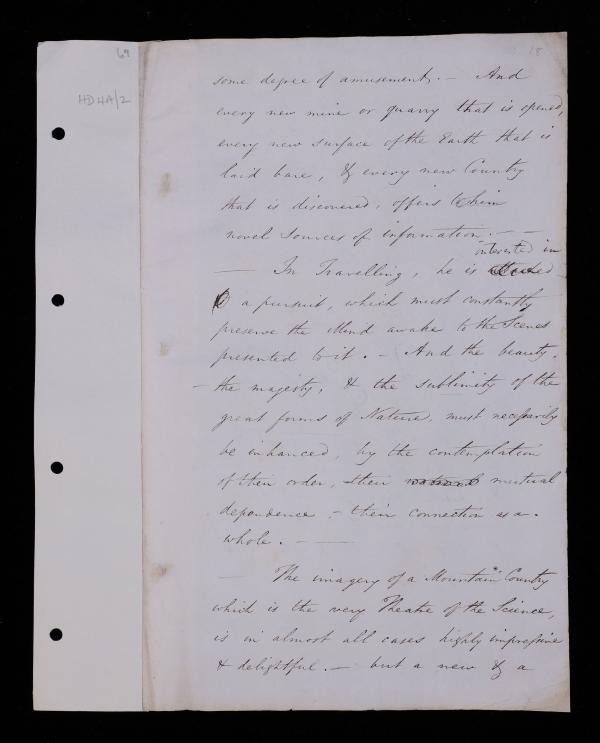 69
18
HD4A/2
some degree of amusement. — And
every new mine or quarry that is opened,
every new surface of the Earth that is
laid bare, & every new Country
that is discovered, offers to him
novel sources of information. — —
interested in
— In Travelling, he is attached
to a pursuit, which must constantly
preserve the Mind awake to the Scenes
presented to it. — And the beauty,
— the majesty, & the sublimity of the
great forms of Nature, must necessarily
be enhanced, by the contemplation
of their order, their mutual
dependence — their connection as a
whole. — —
— The imagery of a Mountain Country
which is the very Theatre of the Science,
is in almost all cases highly impressive
& delightful. — but a new & a